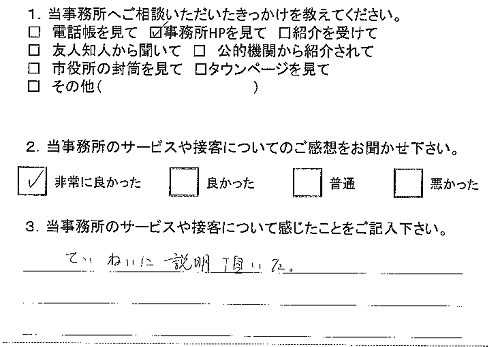 1．当事務所へご相談いただいたきっかけを教えてください。
□ 電話帳を見て ☑事務所HPを見て □紹介を受けて
□ 友人知人から聞いて □ 公的機関から紹介されて
□ 市役所の封筒を見て □タウンページを見て
□ その他（　　　　　　　　　　）
2．当事務所のサービスや接客についてのご感想をお聞かせ下さい。
☑ 非常に良かった □ 良かった □ 普通 □ 悪かった
3．当事務所のサービスや接客について感じたことをご記入下さい。
ていねいに説明頂いた。